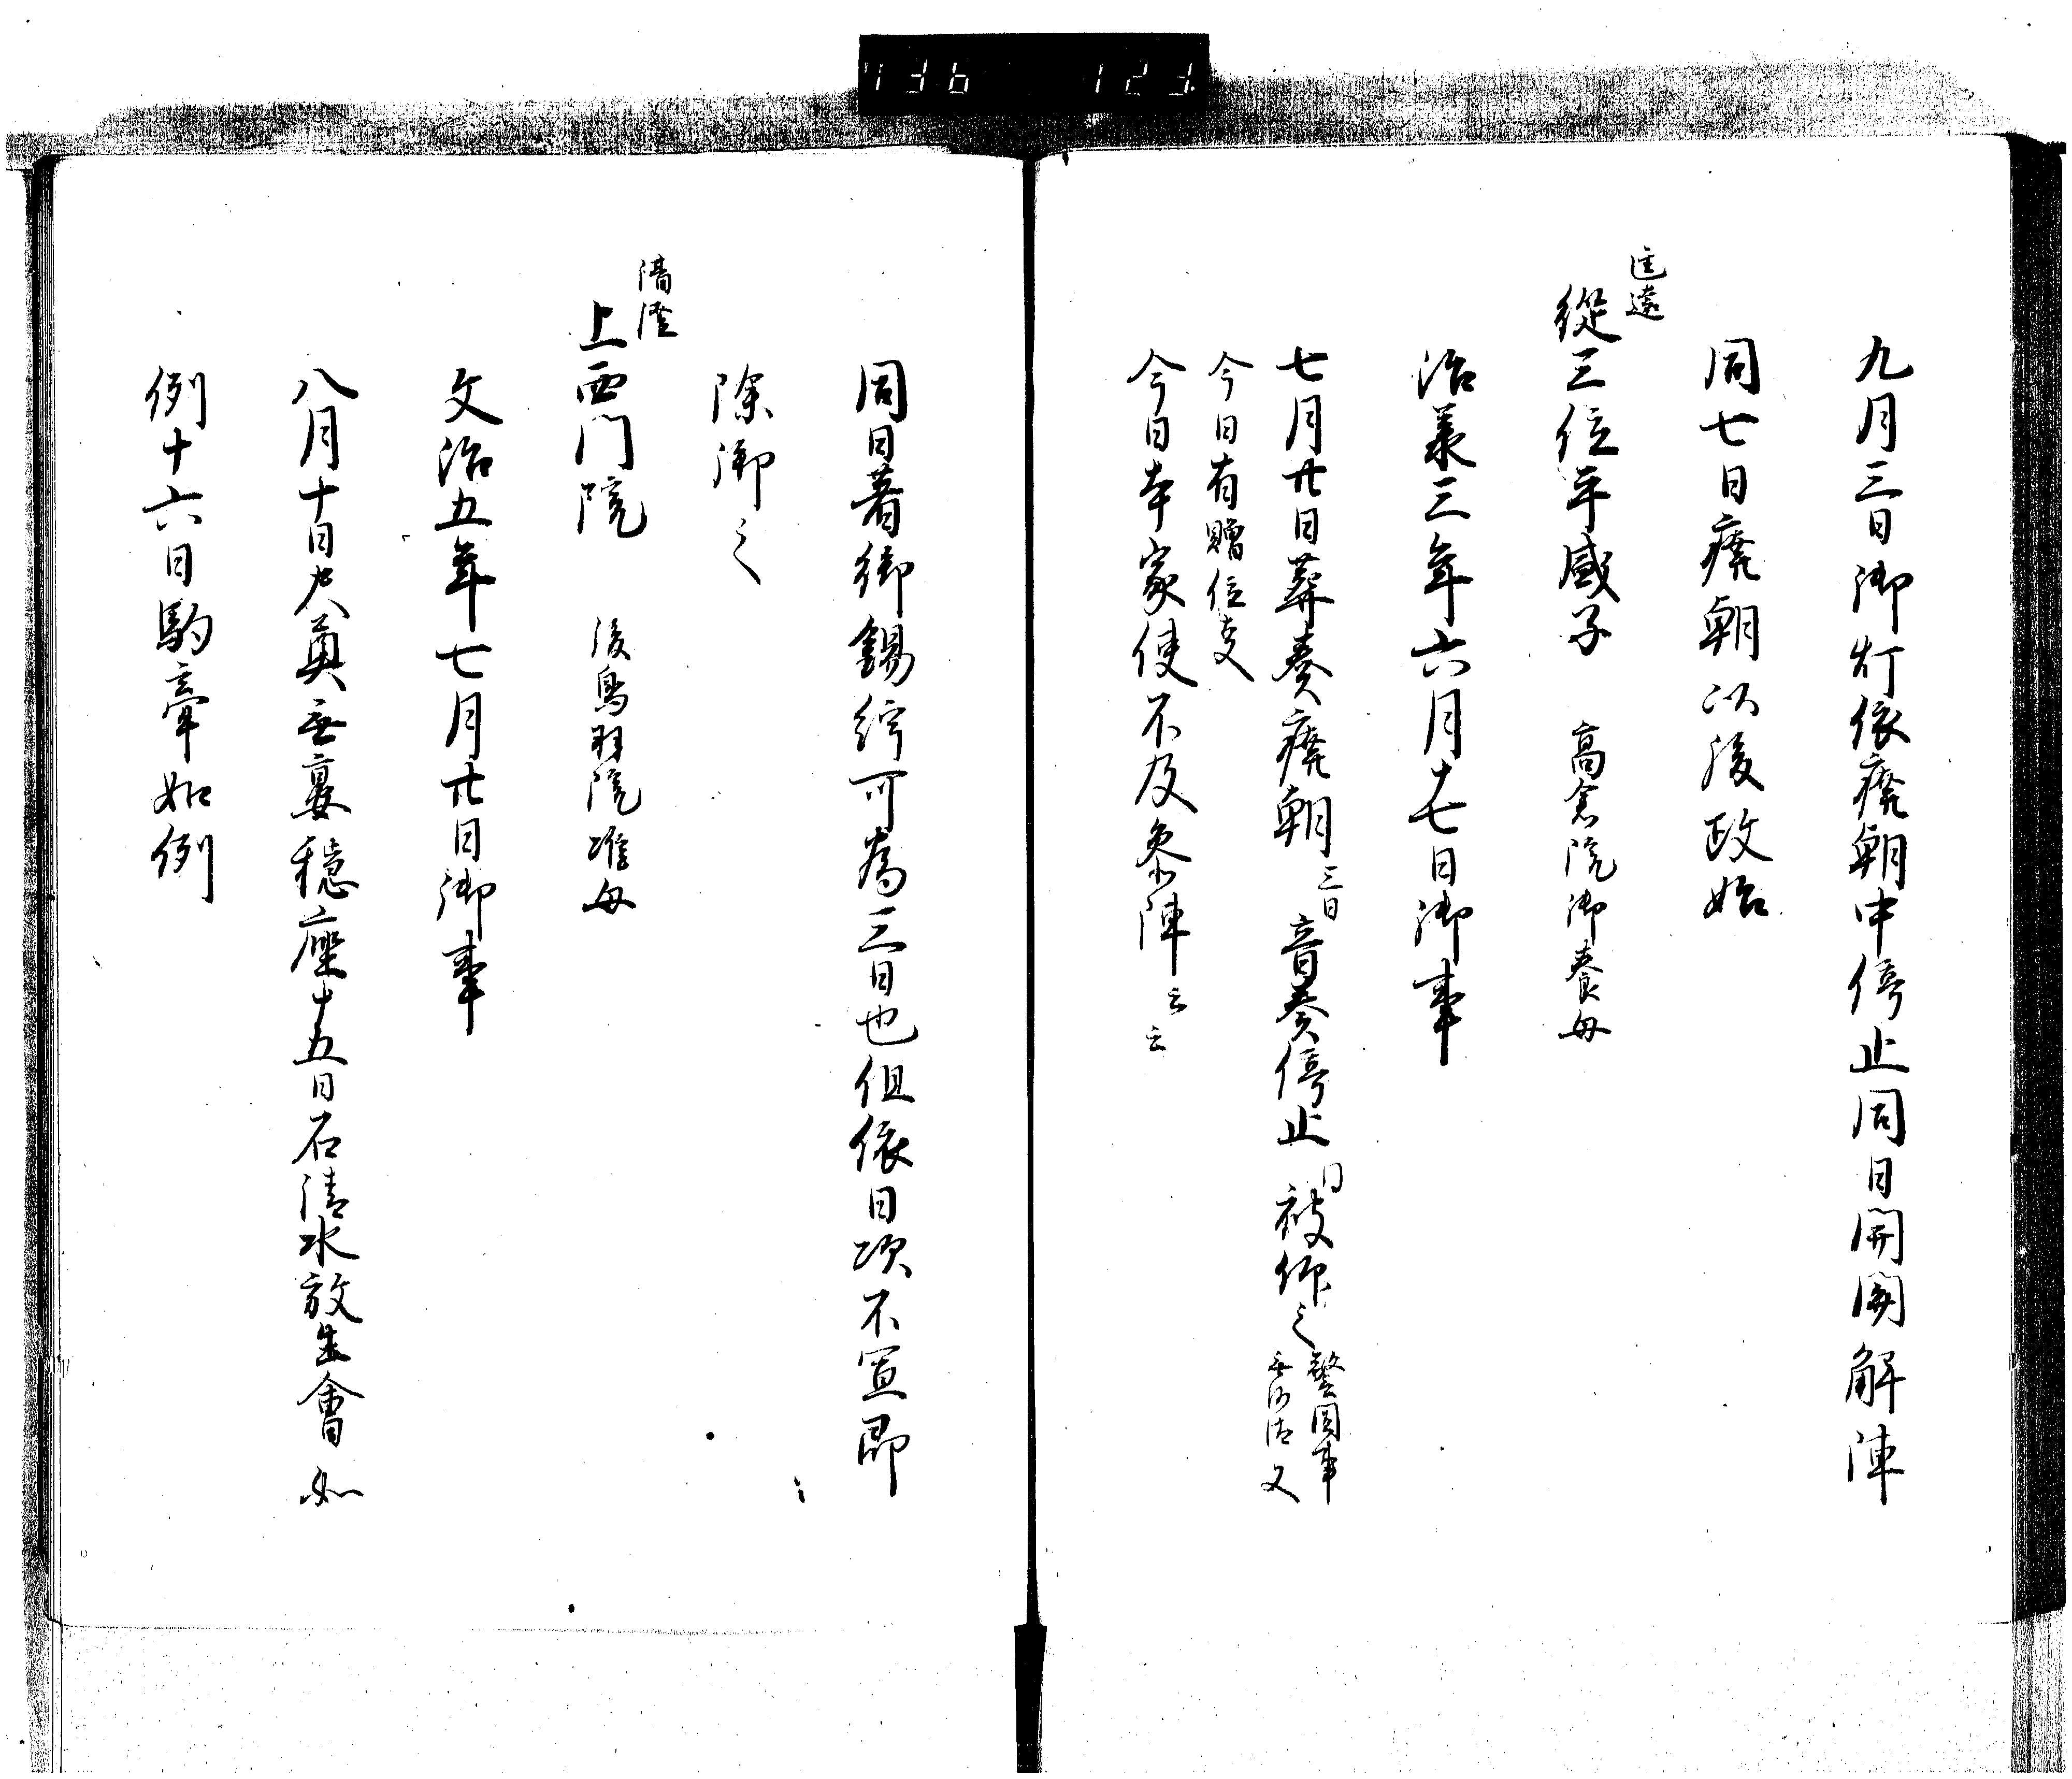 九月三日御灯依廃朝中停止同日開関解陣
同七日廃朝以後政始
匡遠
従三位平盛子 高倉院御養母
治承三年六月十七日御事
七月廿日葬奏廃朝三日音奏停止同被仰之警固事
無沙汰又
今日有贈位事
今日本家使不及参陣云云
同日著御錫紵可為三日也但依日次不宜即
除御之
清澄
上西門院 後鳥羽院准母
文治五年七月廿日御事
八月十日尺奠無宴穏座十五日石清水放生會如
例十六日駒牽如例
136 123